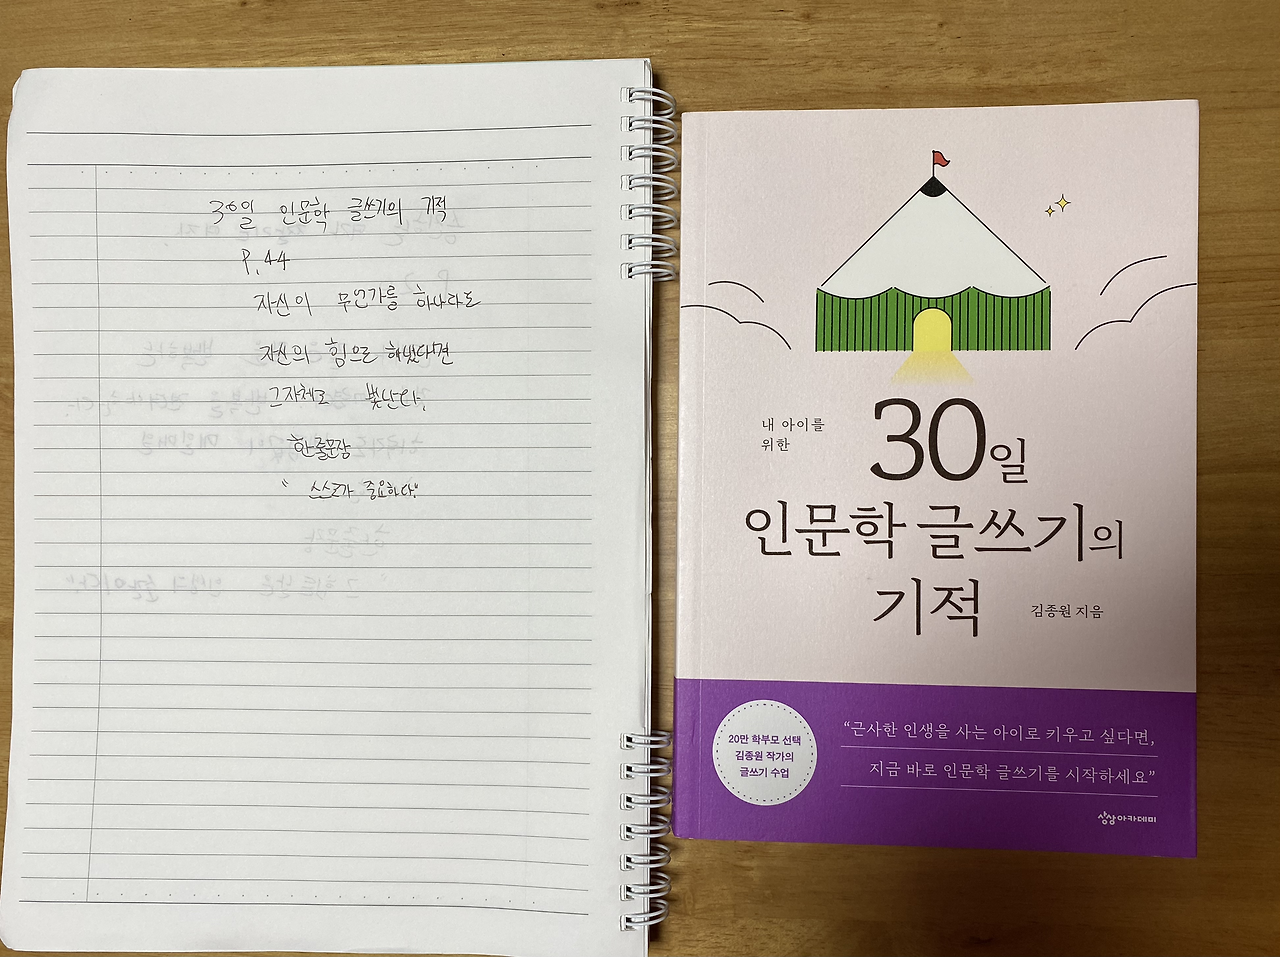 30일 인문학 글쓰기의 기적
P.44
자신이 무언가를 하나라도
자신의 힘으로 해냈다면
그자체로 빛난다.
한줄문장
"스스로가 중요하다."
내 아이를
위한
30일
인문학 글쓰기의
기적
김종원 지음
20만 학부모 선택
김종원 작가의
글쓰기 수업
“근사한 인생을 사는 아이로 키우고 싶다면,
지금 바로 인문학 글쓰기를 시작하세요”
상상아카데미